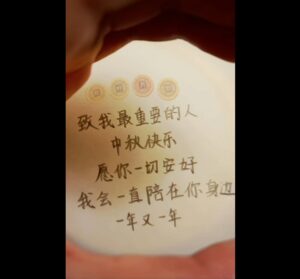 致我最重要的人
中秋快乐
愿你一切安好
我会一直陪在你身边
一年又一年